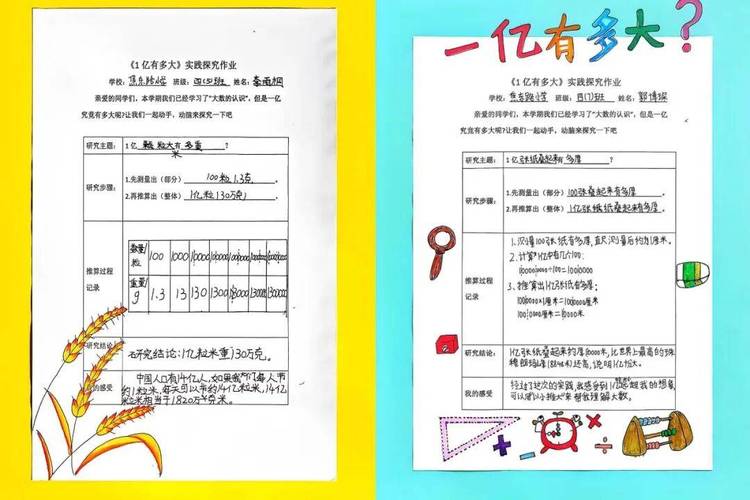 《1亿有多大》实践探究作业
学校：焦东路小学 班级：四(5)班 姓名：秦雨桐
亲爱的同学们，本学期我们已经学习了"大数的认识"，但是一亿
究竟有多大呢？让我们一起动手，动脑来探究一下吧
研究主题： 1亿 颗粒大米有多重 ？
研究步骤：
1.先测量出（部分） 100粒1.3克 。
2.再推算出（整体） 1亿粒130万克 。
推算过程
记录
数量/粒 100 1000 10000 100000
重量/g 1.3 13 130 1300 13000 130000
研究结论：
研究结论：1亿粒米重130万克。
我的感受
中国人口有14亿人，如果我们每人节
约1粒米，每天可以节约14亿粒米，14亿
粒米相当于1820万克米。
一亿有多大？
《1亿有多大》实践探究作业
学校：焦东路小学 班级： 姓名：郭博琛
亲爱的同学们，本学期我们已经学习了"大数的认识"，但是一亿
究竟有多大呢？让我们一起动手，动脑来探究一下吧
研究主题： 1亿 张纸叠起来有多厚 ？
研究步骤：
1.先测量出（部分） 100张叠起来有多厚 。
2.再推算出（整体） 1亿张纸叠起来有多厚 。
推算过程
记录
1.测量100张纸有多厚，直尺测量后约为1厘米。
2.计算1亿中有几个100：
100000000÷100=1000000
3.推算出1亿张纸有多厚：
1000000×1厘米=1000000厘米
1000000厘米=10000米
研究结论：
1亿张纸叠起来约厚10000米，比世界上最高的珠
穆朗玛峰(8848米)还高，说明1亿很大。
我的感受
经过这次的实践，我感受到1亿远超我的想象，
可以用以小推大来帮我理解大数。